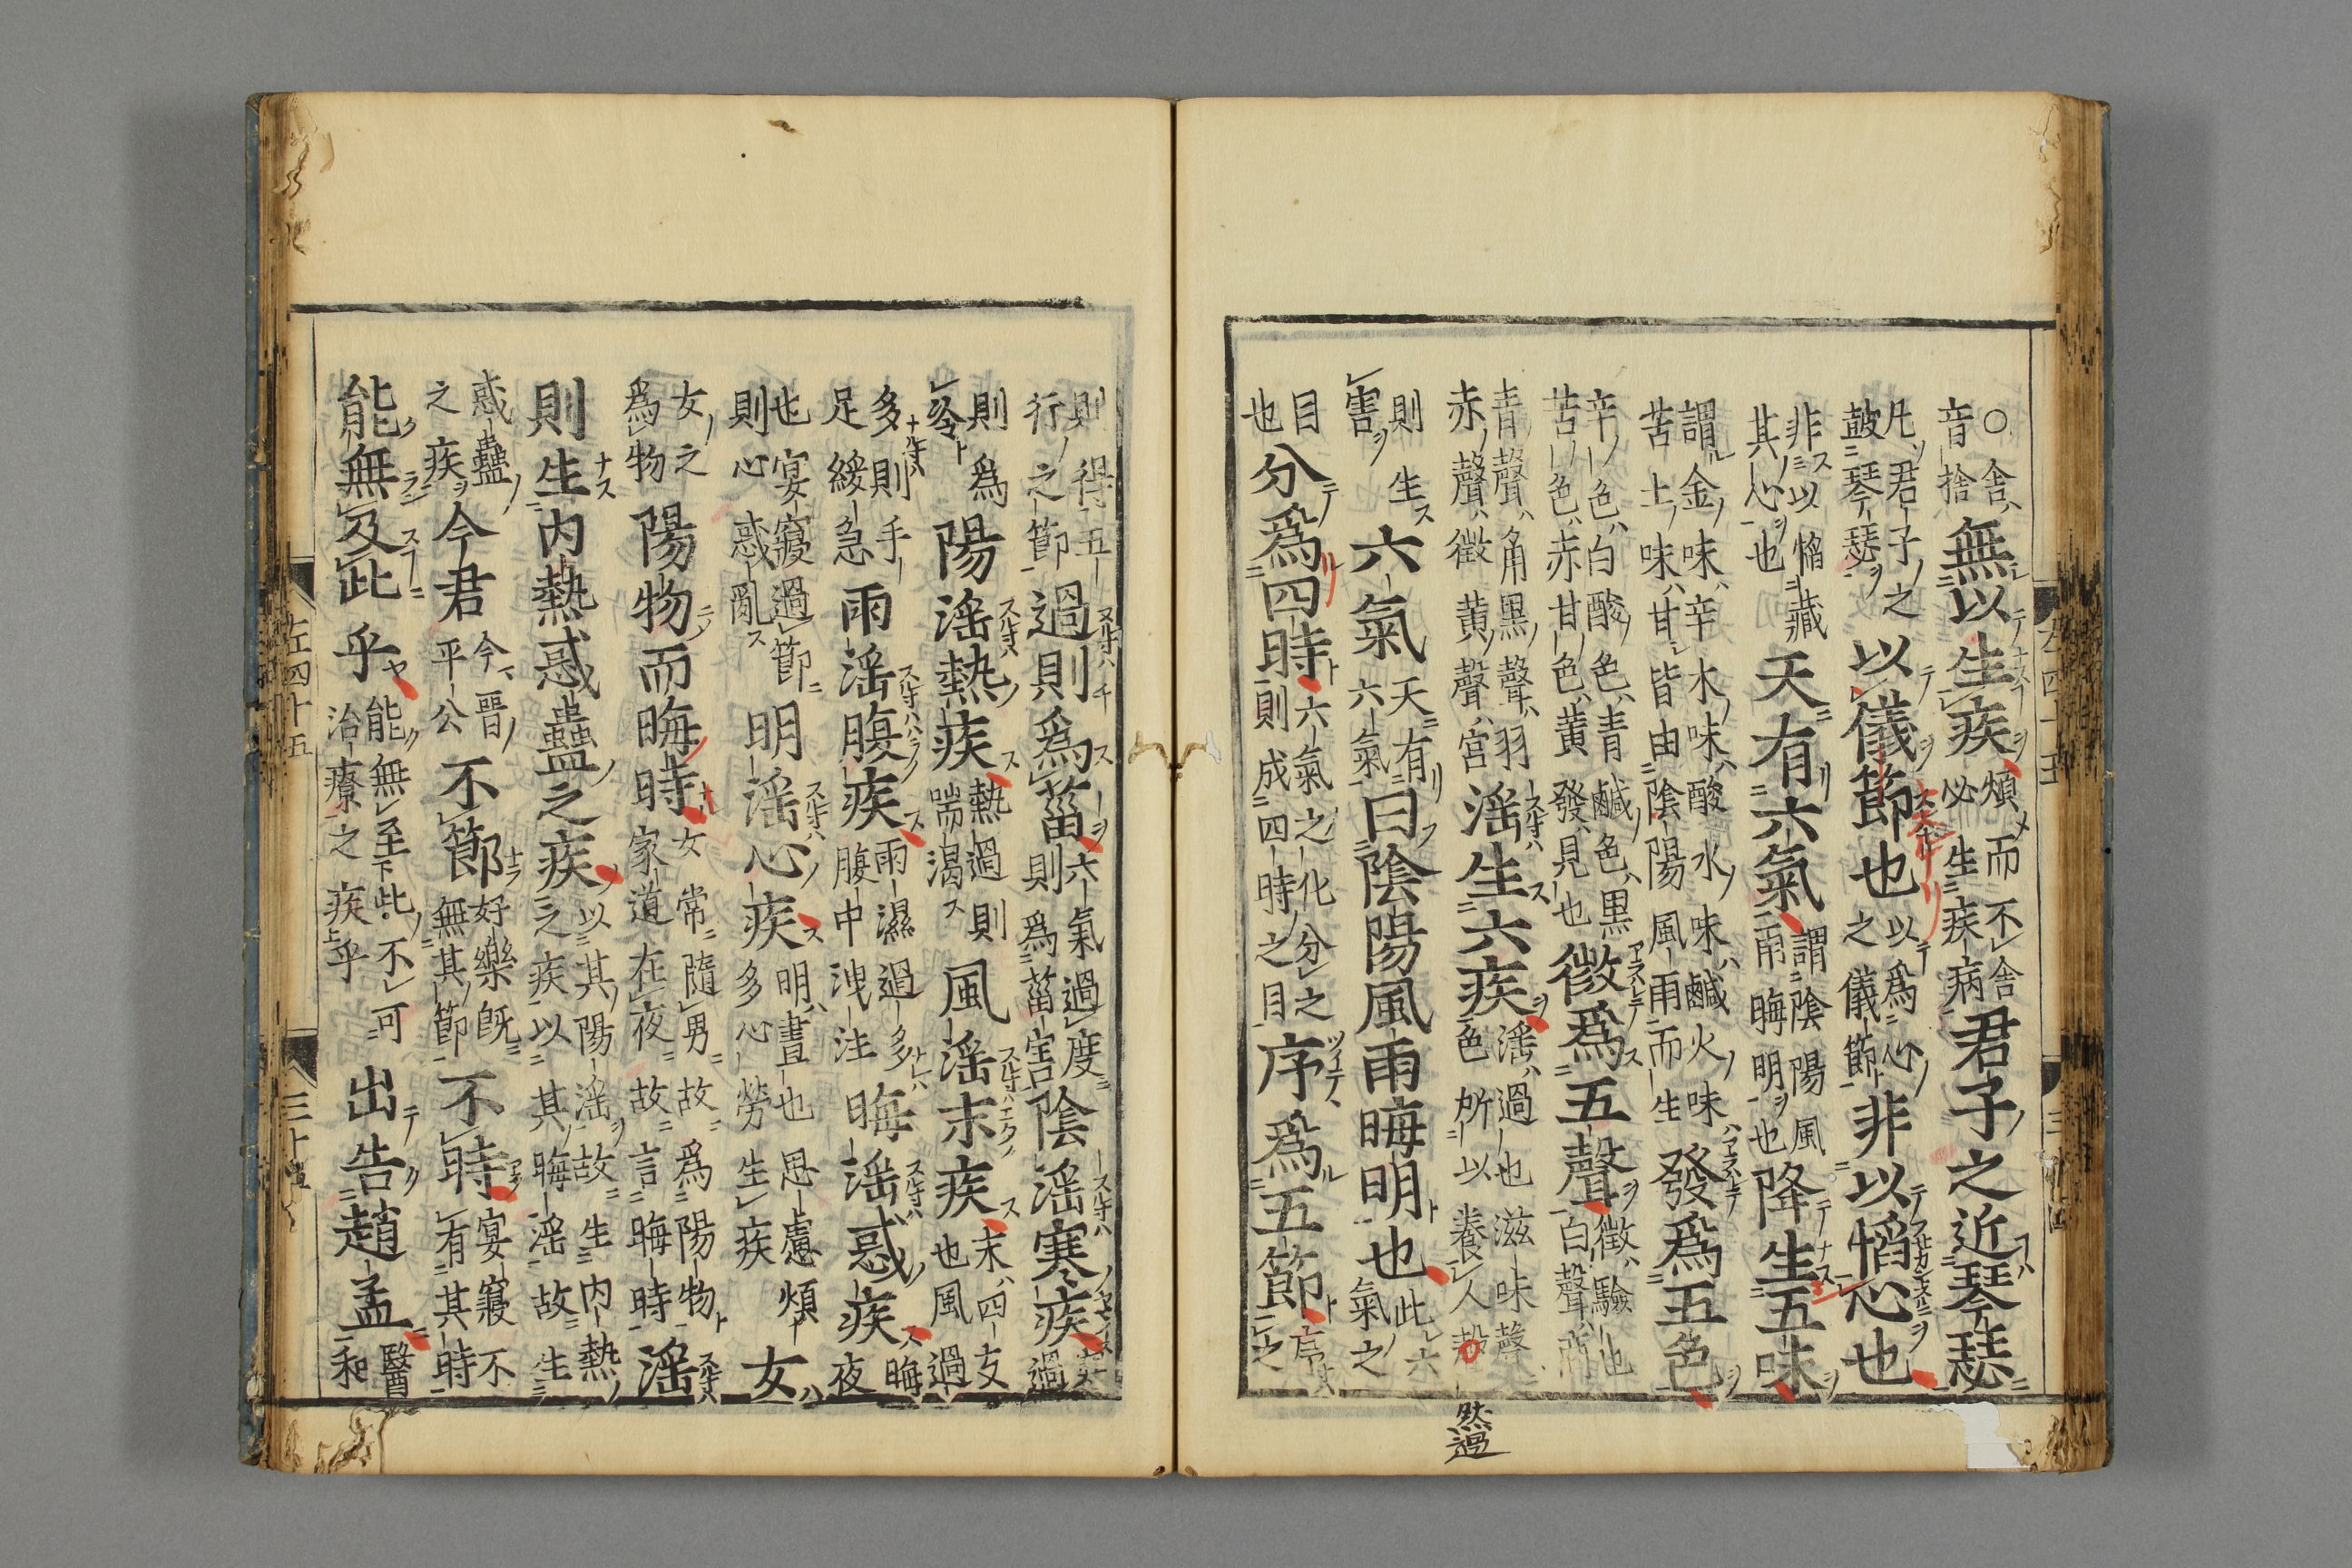 ○舍音捨無以生疾煩而不舍必生疾病君子之近琴瑟
凡君子之鼓琴瑟以儀節也以爲心之儀節非以慆心也
非以慆藏其心也天有六氣謂陰陽風雨晦明也降生五味
謂金味辛木味酸水味鹹火味苦土味甘皆由陰陽風雨而生發爲五色
辛色白酸色青鹹色黑苦色赤甘色黃發見也徵爲五聲徵驗也白聲商
青聲角黑聲羽赤聲徵黃聲宮淫生六疾淫過也滋味聲色所以養人
然過
則生害六氣天有六氣曰陰陽風雨晦明也此六氣之
目也分爲四時六氣之化分之則成四時之目序爲五節序之
則得五行之節過則爲菑六氣過度則爲菑害陰淫寒疾過
則爲冷陽淫熱疾熱過則喘渴風淫末疾末四支也風過
多則手足緩急雨淫腹疾雨濕過多腹中洩注晦淫惑疾晦夜
也宴寢過節則心惑亂明淫心疾明晝也思慮煩多心勞生疾女
女之爲物陽物而晦時女常隨男故爲陽物家道在夜故言晦時淫
則生內熱惑蠱之疾以其陽淫故生內熱之疾以其晦淫故生
惑蠱之疾今君今晉平公不節好樂旣無其節不時宴寢不有其時
能無及此乎能無至此不可治療之疾乎出告趙孟醫和
左四十五